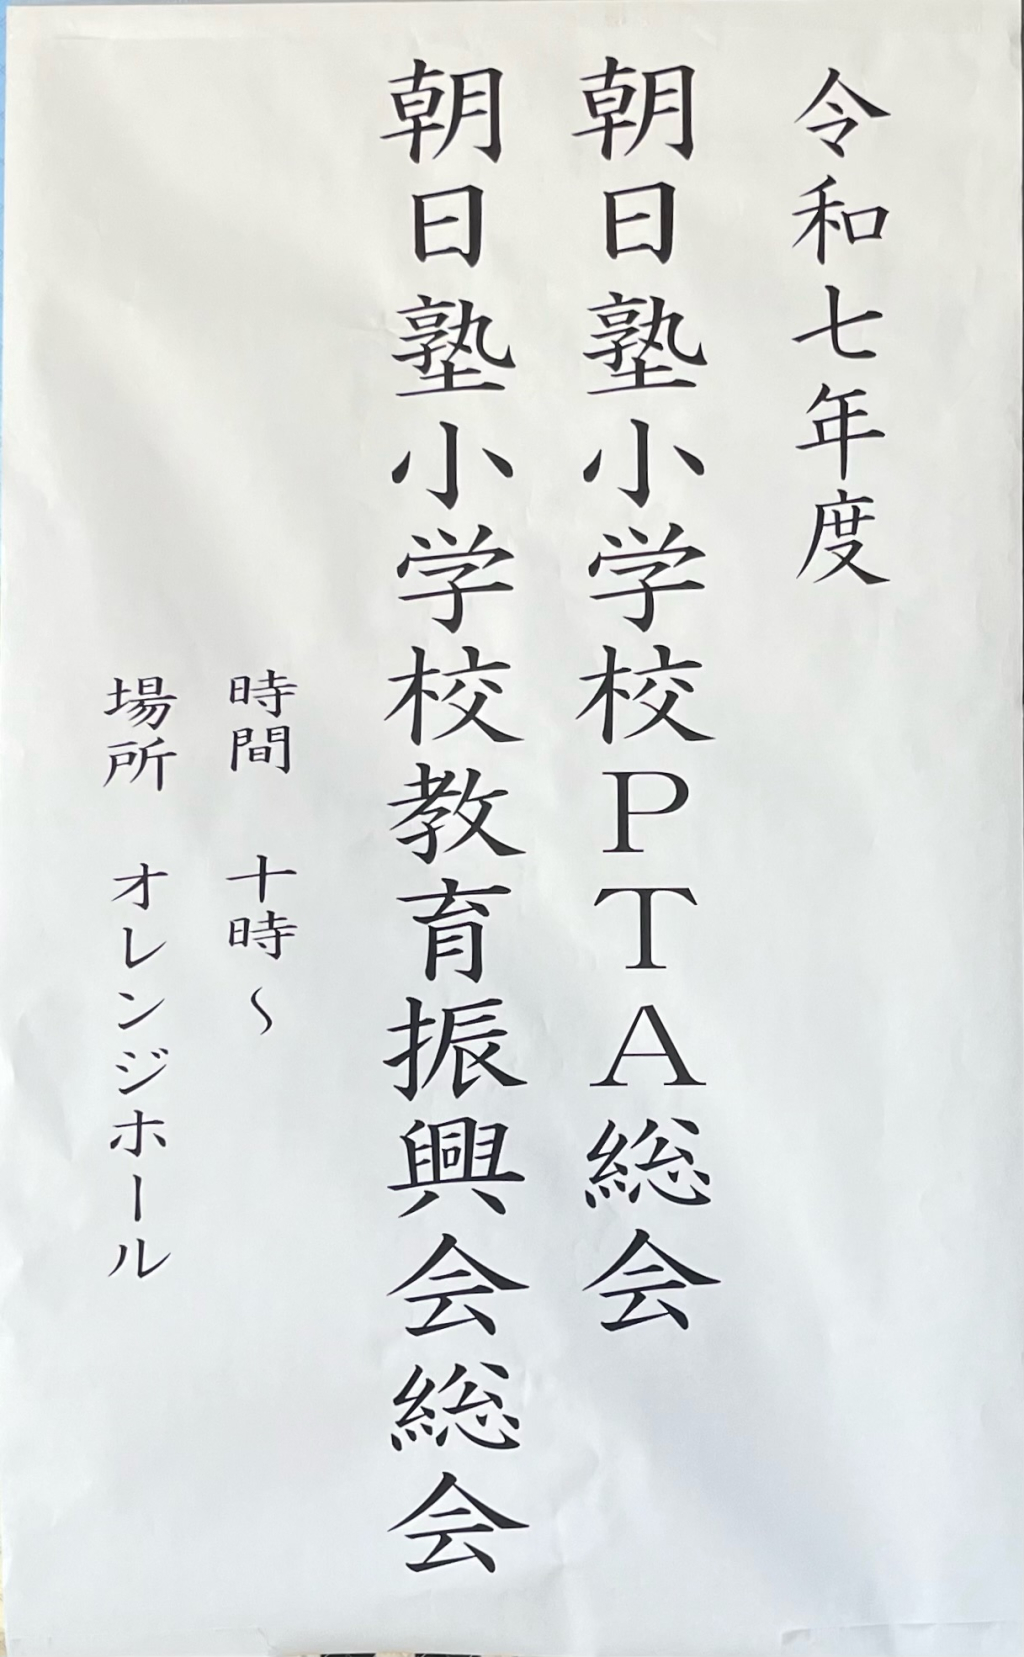 令和七年度
朝日塾小学校PTA総会
朝日塾小学校教育振興会総会
時間　十時〜
場所　オレンジホール